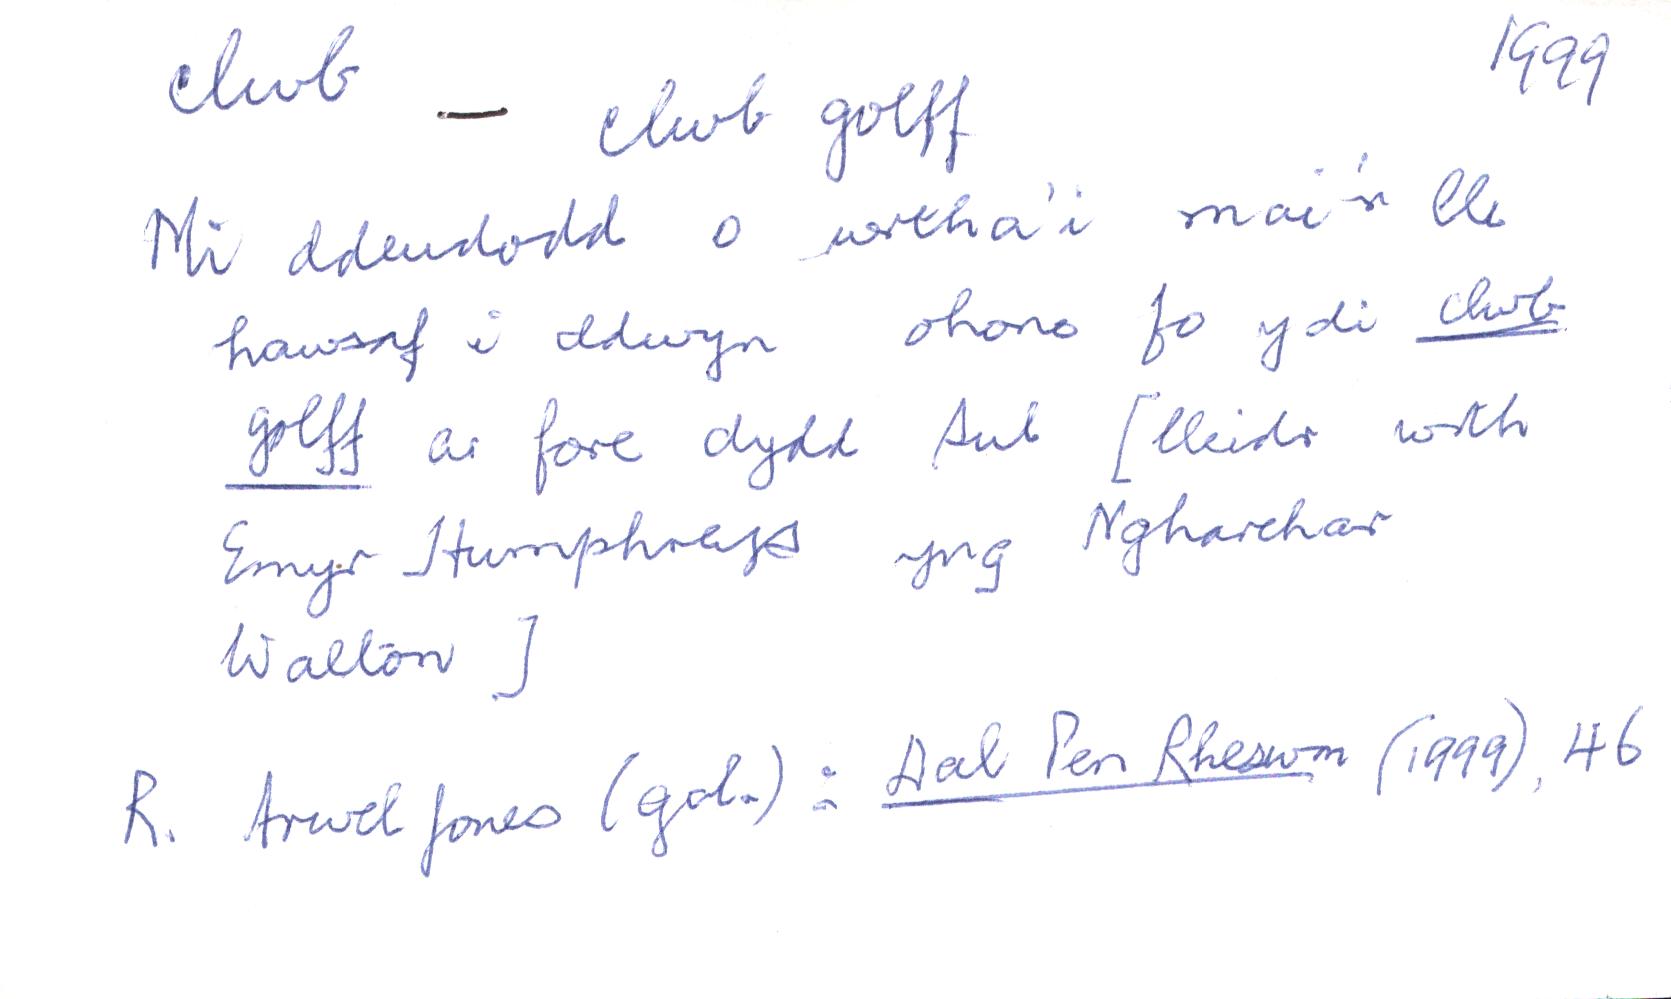 clwb — clwb golff 1999
Mi ddeudodd o wrtha'i mai'r lle
hawsaf i ddwyn ohono fo ydi clwb
golff ar fore dydd Sul [lleidr wrth
Emyr Humphreys yng Ngharchar
Walton]
R. Arwel Jones (gol.): Dal Pen Rheswm (1999), 46